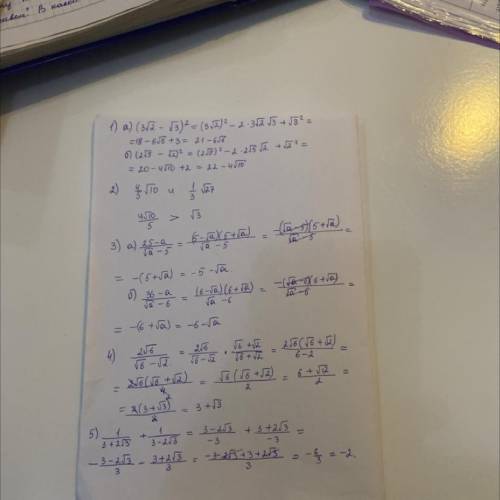 1) а) (3√2 - √3)² = (3√2)² - 2 · 3√2 √3 + √3² =
= 18 - 6√6 + 3 = 21 - 6√6
б) (2√5 - √2)² = (2√5)² - 2 · 2√5 √2 + √2² =
= 20 - 4√10 + 2 = 22 - 4√10
2) 4/5 √10 и 1/3 √27
4√10/5 > √3
3) а) (25-a)/(√a - 5) = (5-√a)(5+√a)/(√a - 5) = -(√a - 5)(5+√a)/(√a - 5) =
= -(5+√a) = -5 - √a
б) (36-a)/(√a - 6) = (6-√a)(6+√a)/(√a - 6) = -(√a-6)(6+√a)/(√a-6) =
= -(6+√a) = -6-√a
4) 2√6/(√6 - √2) = 2√6/(√6-√2) · (√6+√2)/(√6+√2) = 2√6(√6+√2)/(6-2) =
= 2√6(√6+√2)/4 2 = √6(√6+√2)/2 = (6+√12)/2 =
= 2(3+√3)/2 = 3+√3
5) 1/(3+2√3) + 1/(3-2√3) = (3-2√3)/-3 + (3+2√3)/-3 =
- (3-2√3)/3 - (3+2√3)/3 = (-3-2√3+3+2√3)/3 = -6/3 = -2